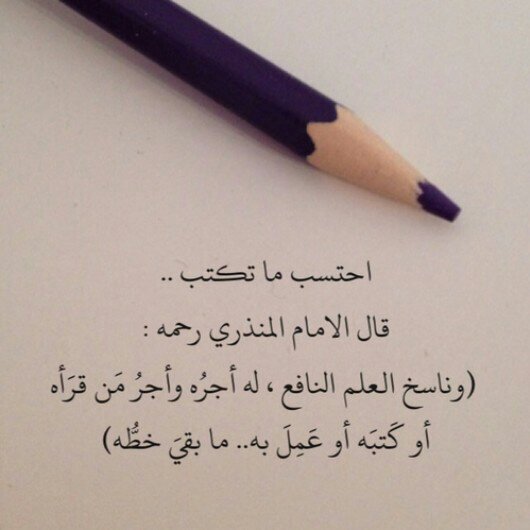 احتسب ما تكتب ..
قال الامام المنذري رحمه :
(وناسخ العلم النافع ، له أجرُه وأجرُ مَن قرَأه
أو كَتبَه أو عَمِلَ به.. ما بقيَ خطُّه)